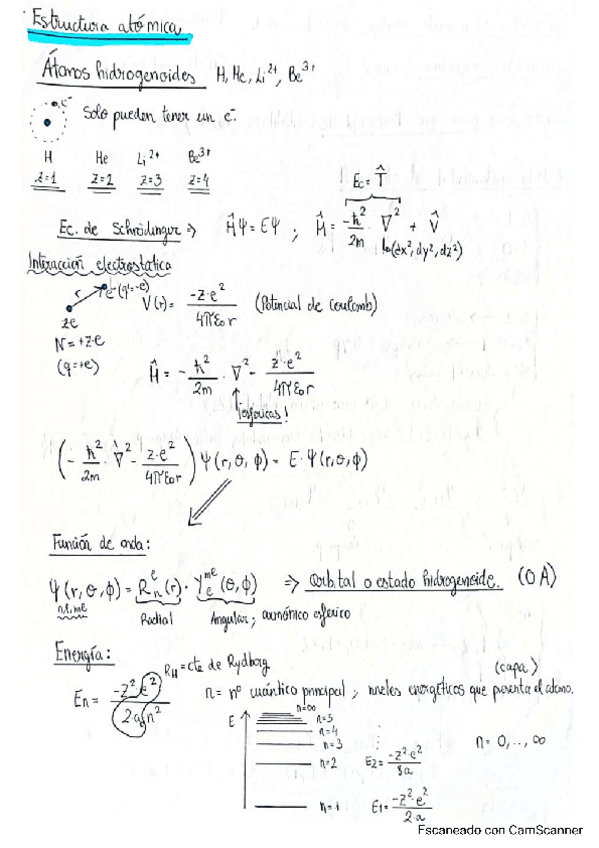 Estructura atómica
Átomos hidrogenoides H, He, Li²⁺, Be³⁺
e⁻ Solo pueden tener un e⁻.
H He Li²⁺ Be³⁺
z=1 z=2 z=3 z=4
Ec = T̂
Ec. de Schrödinger ⇒ ĤΨ = EΨ ; Ĥ = -ħ²/2m · ∇² + V̂
(dx², dy², dz²)
Interacción electrostática
r e⁻(q=-e)
V(r) = -z·e²/4πε₀r (Potencial de Coulomb)
ze
N = +z·e
(q=+e)
Ĥ = -ħ²/2m · ∇² - z·e²/4πε₀r
¡esféricas!
(-ħ²/2m · ∇² - z·e²/4πε₀r) Ψ(r,θ,ϕ) = E·Ψ(r,θ,ϕ)
Función de onda:
Ψ(r,θ,ϕ) = Rₙˡ(r) · Yₗᵐˡ(θ,ϕ) ⇒ Orbital o estado hidrogenoide. (OA)
n,l,ml Radial Angular; armónico esférico
Energía:
R_H = cte de Rydberg (capa)
En = -z²e²/2·a₀n² n = nº cuántico principal; niveles energéticos que presenta el átomo.
E
n=∞
n=5
n=4
n=3
n=2 E2 = -z²·e²/8a
n=1 E1 = -z²·e²/2·a
n = 0,..,∞
Escaneado con CamScanner